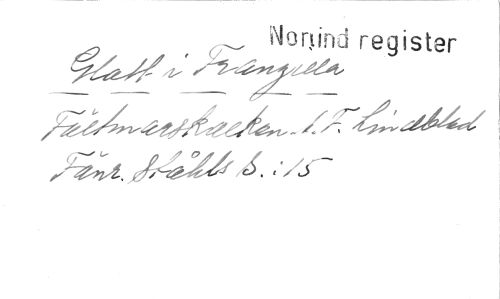 Nonind register
Glatt i Frangsilla
Fältmarskalken. O. F. Lindblad
Fänr. Ståhls b. : 15